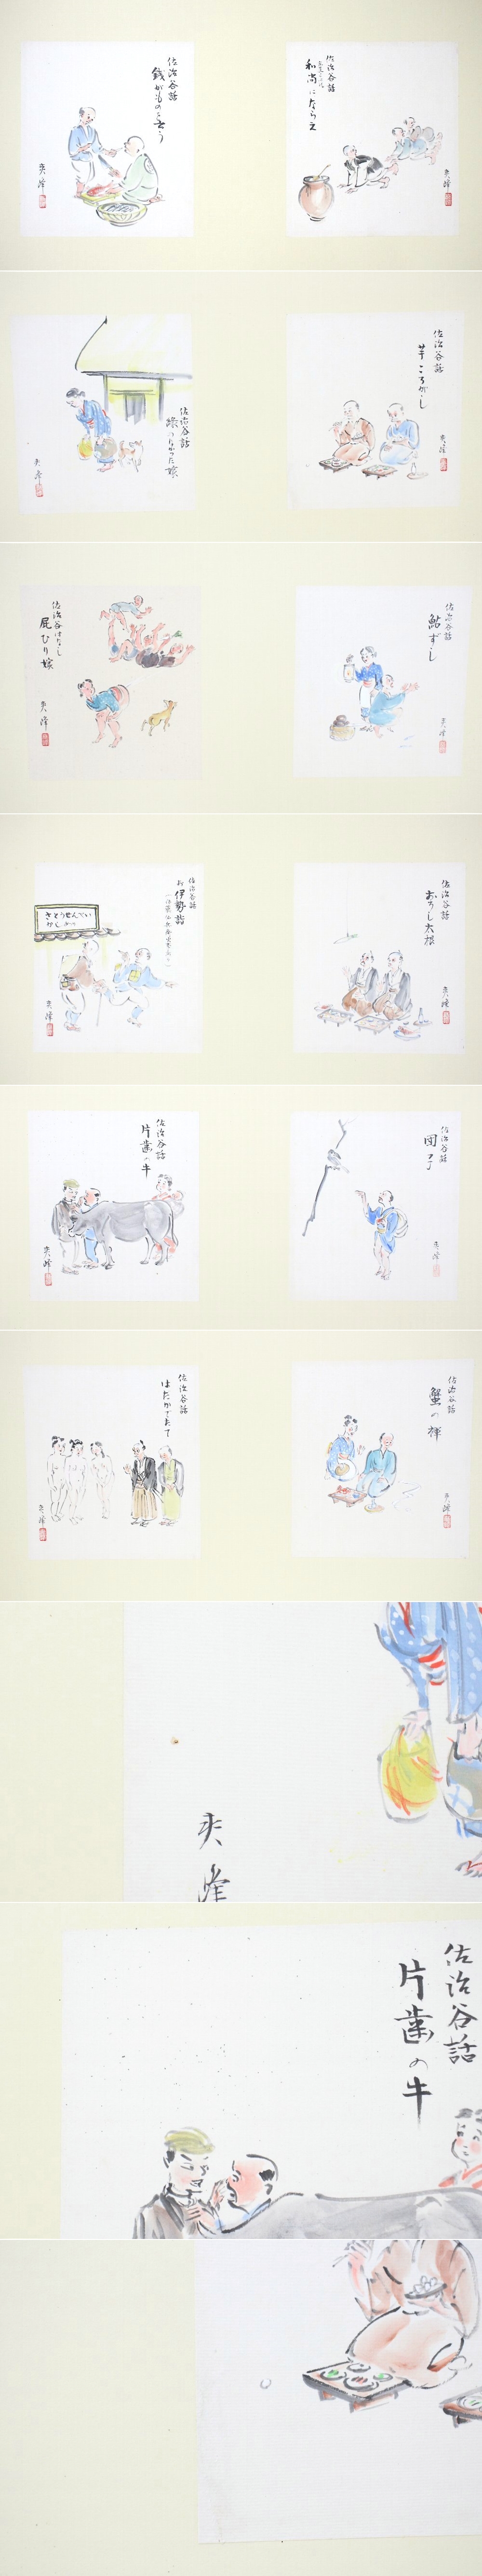 佐治谷話
銭がものを云う
爽峰
佐治谷話
和尚にならえ
爽峰
佐治谷話
爽峰
佐治谷話
芋ころがし
爽峰
佐治谷はなし
屁ひり嫁
爽峰
佐治谷話
鮎ずし
爽峰
佐治谷話
お伊勢詣
さとうせんべい
爽峰
佐治谷話
おろし大根
爽峰
佐治谷話
片歯の牛
爽峰
佐治谷話
団子
爽峰
佐治谷話
はだかでたて
爽峰
佐治谷話
蟹の褌
爽峰
爽峰
佐治谷話
片歯の牛